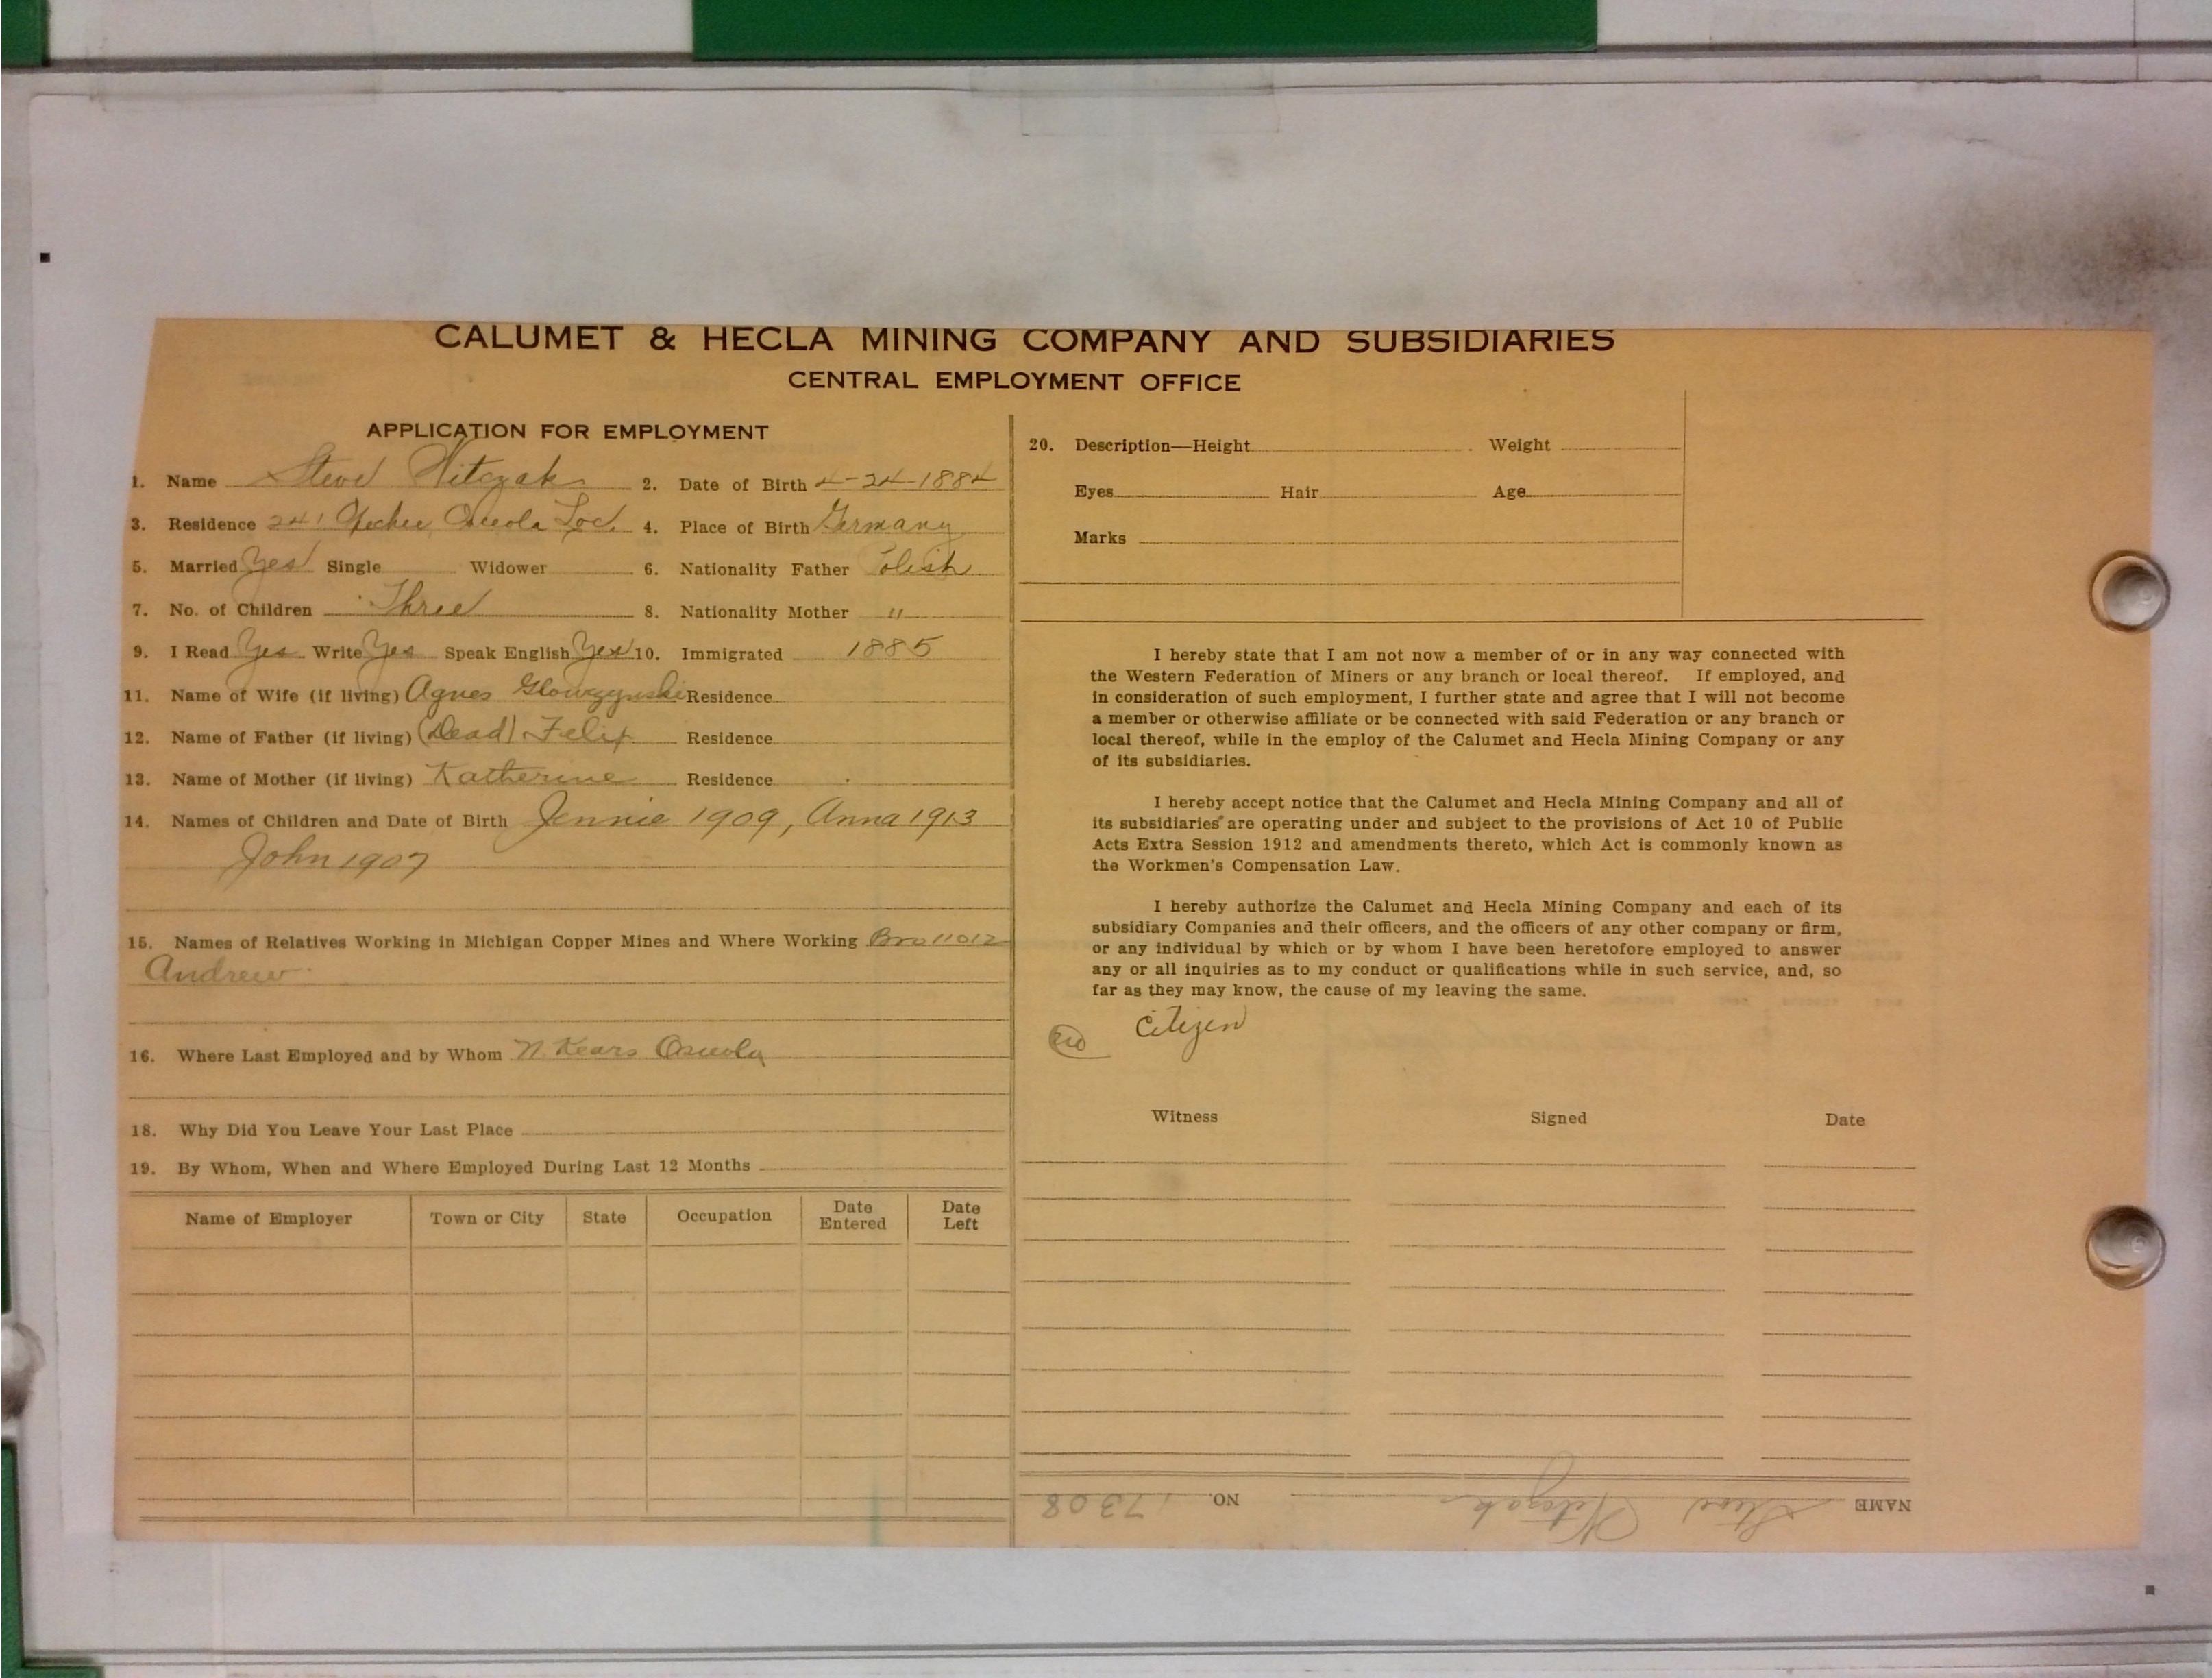 CALUMET & HECLA MINING COMPANY AND SUBSIDIARIES
CENTRAL EMPLOYMENT OFFICE
APPLICATION FOR EMPLOYMENT
1. Name Steve Witczak 2. Date of Birth 4-24-1884
3. Residence 241 Osceola Loc. 4. Place of Birth Germany
5. Married Yes Single Widower 6. Nationality Father Polish
7. No. of Children Three 8. Nationality Mother "
9. I Read Yes Write Yes Speak English Yes 10. Immigrated 1885
11. Name of Wife (if living) Agnes Glowczynski Residence
12. Name of Father (if living) (Dead) Felix Residence
13. Name of Mother (if living) Katherine Residence
14. Names of Children and Date of Birth Jennie 1909, Anna 1913
John 1907
15. Names of Relatives Working in Michigan Copper Mines and Where Working Bro 11012
Andrew
16. Where Last Employed and by Whom N. Kears Osceola
18. Why Did You Leave Your Last Place
19. By Whom, When and Where Employed During Last 12 Months
Name of Employer Town or City State Occupation Date Entered Date Left
20. Description—Height Weight
Eyes Hair Age
Marks
I hereby state that I am not now a member of or in any way connected with
the Western Federation of Miners or any branch or local thereof. If employed, and
in consideration of such employment, I further state and agree that I will not become
a member or otherwise affiliate or be connected with said Federation or any branch or
local thereof, while in the employ of the Calumet and Hecla Mining Company or any
of its subsidiaries.
I hereby accept notice that the Calumet and Hecla Mining Company and all of
its subsidiaries are operating under and subject to the provisions of Act 10 of Public
Acts Extra Session 1912 and amendments thereto, which Act is commonly known as
the Workmen's Compensation Law.
I hereby authorize the Calumet and Hecla Mining Company and each of its
subsidiary Companies and their officers, and the officers of any other company or firm,
or any individual by which or by whom I have been heretofore employed to answer
any or all inquiries as to my conduct or qualifications while in such service, and, so
far as they may know, the cause of my leaving the same.
Citizen
Witness Signed Date
NAME Steve Witczak NO. 17308